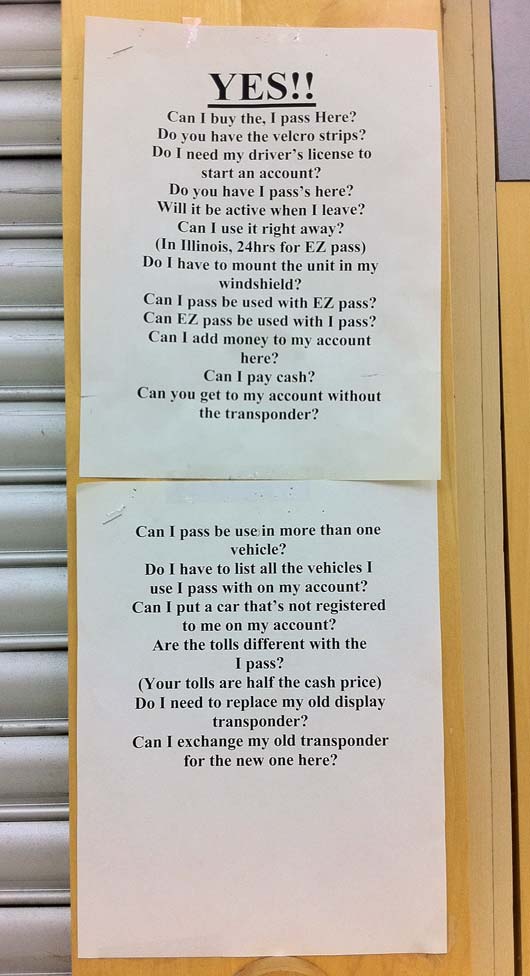 YES!!
Can I buy the, I pass Here?
Do you have the velcro strips?
Do I need my driver's license to
start an account?
Do you have I pass's here?
Will it be active when I leave?
Can I use it right away?
(In Illinois, 24hrs for EZ pass)
Do I have to mount the unit in my
windshield?
Can I pass be used with EZ pass?
Can EZ pass be used with I pass?
Can I add money to my account
here?
Can I pay cash?
Can you get to my account without
the transponder?
Can I pass be use in more than one
vehicle?
Do I have to list all the vehicles I
use I pass with on my account?
Can I put a car that's not registered
to me on my account?
Are the tolls different with the
I pass?
(Your tolls are half the cash price)
Do I need to replace my old display
transponder?
Can I exchange my old transponder
for the new one here?